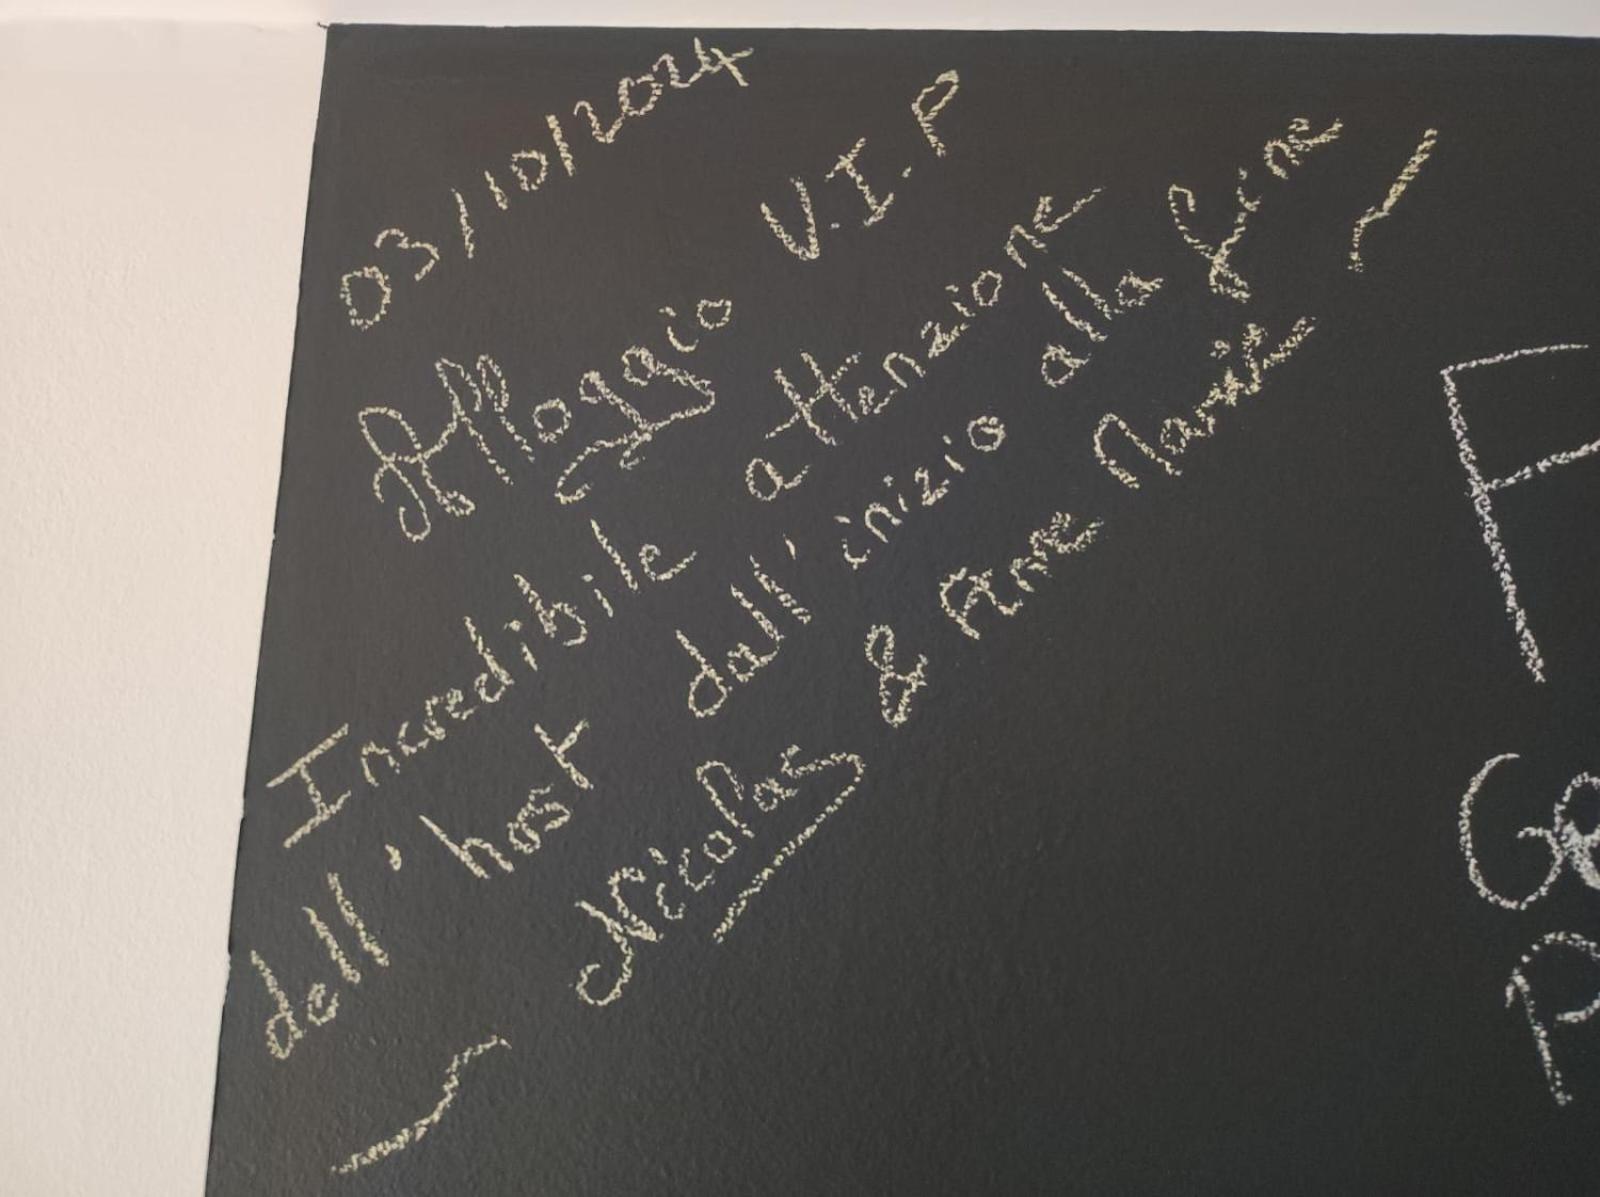 03/10/2024
Alloggio V.I.P
Incredibile attenzione
dell'host dall'inizio alla fine
~ Nicolas & Anne Marie ~
F
Ge
P